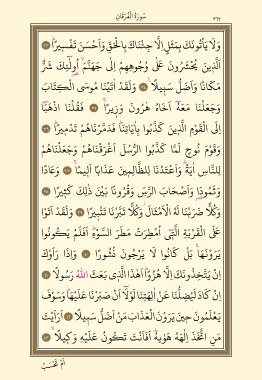 سُورَةُ الْفُرْقَانِ
٣٦٢
وَلَا يَأْتُونَكَ بِمَثَلٍ اِلَّا جِئْنَاكَ بِالْحَقِّ وَاَحْسَنَ تَفْسِيرًا ﴿٣٣﴾
اَلَّذِينَ يُحْشَرُونَ عَلٰى وُجُوهِهِمْ اِلٰى جَهَنَّمَ اُولٰٓئِكَ شَرٌّ
مَكَانًا وَاَضَلُّ سَبِيلًا ﴿٣٤﴾ وَلَقَدْ اٰتَيْنَا مُوسَى الْكِتَابَ
وَجَعَلْنَا مَعَهُٓ اَخَاهُ هٰرُونَ وَزِيرًا ﴿٣٥﴾ فَقُلْنَا اذْهَبَٓا
اِلَى الْقَوْمِ الَّذِينَ كَذَّبُوا بِاٰيَاتِنَا فَدَمَّرْنَاهُمْ تَدْمِيرًا ﴿٣٦﴾
وَقَوْمَ نُوحٍ لَمَّا كَذَّبُوا الرُّسُلَ اَغْرَقْنَاهُمْ وَجَعَلْنَاهُمْ
لِلنَّاسِ اٰيَةً وَاَعْتَدْنَا لِلظَّالِمِينَ عَذَابًا اَلِيمًا ﴿٣٧﴾ وَعَادًا
وَثَمُودَا وَاَصْحَابَ الرَّسِّ وَقُرُونًا بَيْنَ ذٰلِكَ كَثِيرًا ﴿٣٨﴾
وَكُلًّا ضَرَبْنَا لَهُ الْاَمْثَالَ وَكُلًّا تَبَّرْنَا تَتْبِيرًا ﴿٣٩﴾ وَلَقَدْ اَتَوْا
عَلَى الْقَرْيَةِ الَّتِٓي اُمْطِرَتْ مَطَرَ السَّوْءِ اَفَلَمْ يَكُونُوا
يَرَوْنَهَا بَلْ كَانُوا لَا يَرْجُونَ نُشُورًا ﴿٤٠﴾ وَاِذَا رَاَوْكَ
اِنْ يَتَّخِذُونَكَ اِلَّا هُزُوًا اَهٰذَا الَّذِي بَعَثَ اللّٰهُ رَسُولًا ﴿٤١﴾
اِنْ كَادَ لَيُضِلُّنَا عَنْ اٰلِهَتِنَا لَوْلَٓا اَنْ صَبَرْنَا عَلَيْهَا وَسَوْفَ
يَعْلَمُونَ حِينَ يَرَوْنَ الْعَذَابَ مَنْ اَضَلُّ سَبِيلًا ﴿٤٢﴾ اَرَاَيْتَ
مَنِ اتَّخَذَ اِلٰهَهُ هَوٰيهُ اَفَاَنْتَ تَكُونُ عَلَيْهِ وَكِيلًا ﴿٤٣﴾
اَمْ تَحْسَبُ